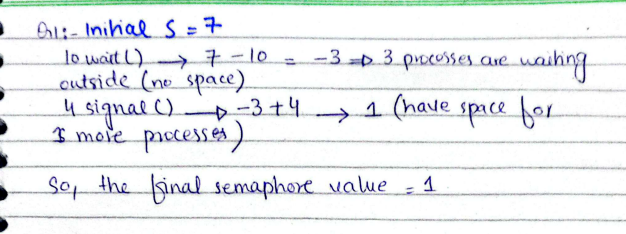 Q11:- Initial S = 7
10 wait() → 7 - 10 = -3 ⇒ 3 processes are waiting
outside (no space)
4 signal() → -3 + 4 → 1 (have space for
more processes)
So, the final semaphore value = 1